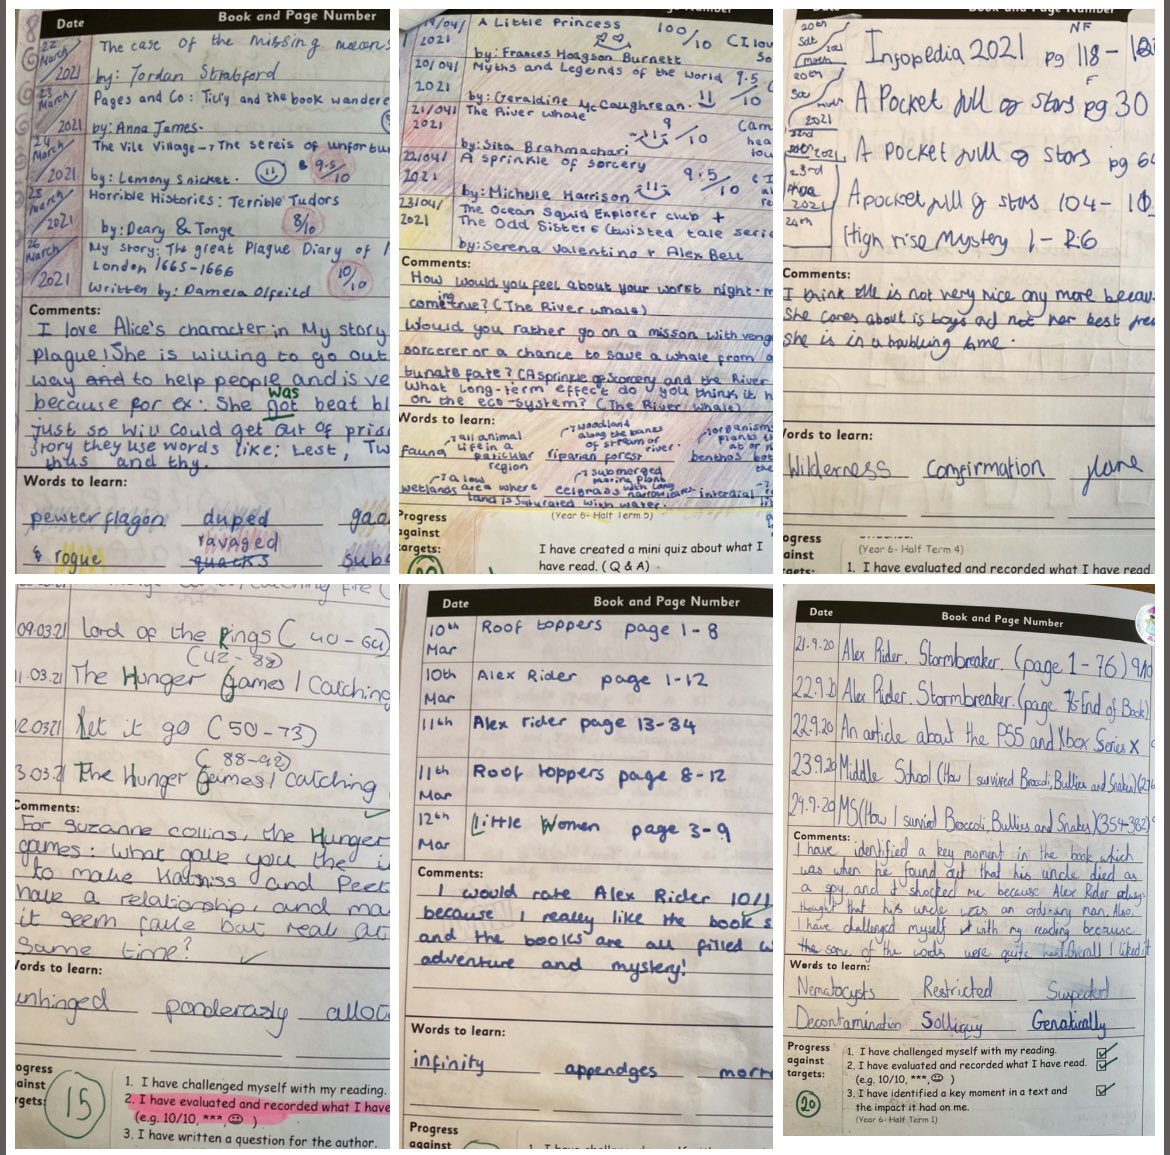 Date Book and Page Number
22 March 2021 The case of the missing moons
by: Jordan Stratford
23 March 2021 Pages and Co: Tilly and the book wandere
by: Anna James.
24 March 2021 The Vile Village - The sereis of unfortun
by: Lemony Snicket. & 9.5/10
25 March 2021 Horrible Histories: Terrible Tudors
by: Deary & Tonge 8/10
26 March 2021 My story: The great Plague Diary of
London 1665-1666
Written by: Pamela Olfeild 10/10
Comments:
I love Alice's character in My story
plague! She is willing to go out
way and to help people and is ve
because for ex: She was got beat bl
just so Will could get out of pris
Story they use words like: Lest, Tw
thus and thy.
Words to learn:
pewter flagon duped gao
ravaged
& rogue quacks sub
19/04/2021 A Little Princess 100/10
by: Frances Hodgson Burnett
20/04/2021 Myths and Legends of the World 9.5/10
by: Geraldine McCaughrean.
21/04/2021 The River whale 9/10
by: Sita Brahmachari
22/04/2021 A sprinkle of sorcery 9.5/10
by: Michelle Harrison
23/04/2021 The Ocean Squid Explorer club +
The Odd Sisters (twisted tale serie
by: Serena Valentino + Alex Bell
Comments:
How would you feel about your worst night-m
coming true? (The River whale)
Would you rather go on a misson with veng
sorcerer or a chance to save a whale from a
tunate fate? (A sprinkle of Sorcery and the River
What long-term effect do you think it h
on the eco-system? (The River whale)
Words to learn:
fauna → all animal life in a paticular region
riparian forest → woodland along the banes of stream or river.
benthos → organism plants t
wetlands → a low area where land is saturated with water.
eelgrass → submerged marine plant with long narrow leaves
interdial
Progress against targets:
(Year 6- Half Term 5)
I have created a mini quiz about what I
have read. (Q & A)
20th Sat March 2021 Infopedia 2021 pg 118 - NF
20th A Pocket full of stars pg 30 F
2021
A Pocket full of stars pg 6
23rd 2021 A pocket full of stars 104 -
24th High rise Mystery 1 - 26
Comments:
I think she is not very nice any more becau
She cares about is boys ad not her best frei
She is in a
Words to learn:
Wilderness comfirmation
ogress
ainst
gets:
(Year 6- Half Term 4)
1. I have evaluated and recorded what I have read.
09.03.21 Lord of the Rings (40-60)
(42-88)
11.03.21 The Hunger Games / Catching
12.03.21 Let it go (50-73)
(88-92)
13.03.21 The Hunger Games / Catching
Comments:
For Suzanne collins, the Hunger
games: What gave you the i
to make Katsniss and Peet
have a relationship, and ma
it seem fake but real at
same time?
Words to learn:
unhinged ponderasly alloc
ogress
ainst
rgets:
15
1. I have challenged myself with my reading.
2. I have evaluated and recorded what I have
(e.g. 10/10, ***, ☺ )
3. I have written a question for the author.
Date Book and Page Number
10th Mar Roof toppers page 1-8
10th Mar Alex Rider page 1-12
11th Alex rider page 13-34
11th Mar Roof toppers page 8-12
12th Mar Little Women page 3-9
Comments:
I would rate Alex Rider 10/1
because I really like the book s
and the books are all filled w
adventure and mystery!
Words to learn:
infinity appendges mort
Progress
against
Date Book and Page Number
21.9.20 Alex Rider. Stormbreaker. (page 1-76) 9/10
22.9.20 Alex Rider. Stormbreaker. (page 76-End of Book)
22.9.20 An article about the PS5 and Xbox Series X
23.9.20 Middle School (How I survived Broccoli, Bullies and Snakes)
24.9.20 MS (How I survied Broccoli, Bullies and Snakes)(354-382)
Comments:
I have identified a key moment in the book which
was when he found out that his uncle died as
a spy, and it shocked me because Alex Rider always
thought that his uncle was an ordinary man. Also,
I have challenged myself with my reading because
the some of the words were quite hard. Overall I liked it
Words to learn:
Nematocysts Restricted Suspected
Decontamination Solliquy Genatically
Progress against targets:
20
1. I have challenged myself with my reading.
2. I have evaluated and recorded what I have read.
(e.g. 10/10, ***, ☺ )
3. I have identified a key moment in a text and
the impact it had on me.
(Year 6- Half Term 1)